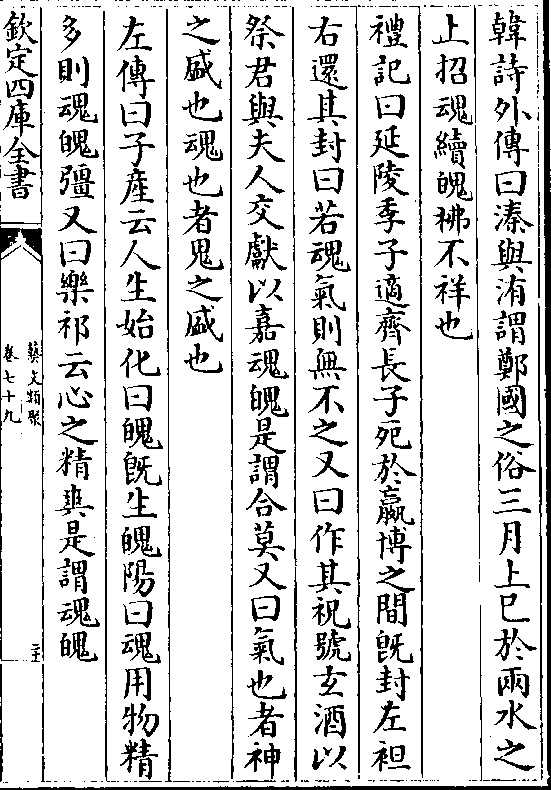 韓詩外傳曰溱與洧謂鄭國之俗三月上巳於兩水之
上招魂續魄祓不祥也
禮記曰延陵季子適齊長子死於嬴博之間旣封左袒
右還其封曰若魂氣則無不之又曰作其祝號玄酒以
祭君與夫人交獻以嘉魂魄是謂合莫又曰氣也者神
之盛也魂也者鬼之盛也
左傳曰子產云人生始化曰魄旣生魄陽曰魂用物精
多則魂魄彊又曰樂祁云心之精爽是謂魂魄
欽定四庫全書
藝文類聚
卷七十九